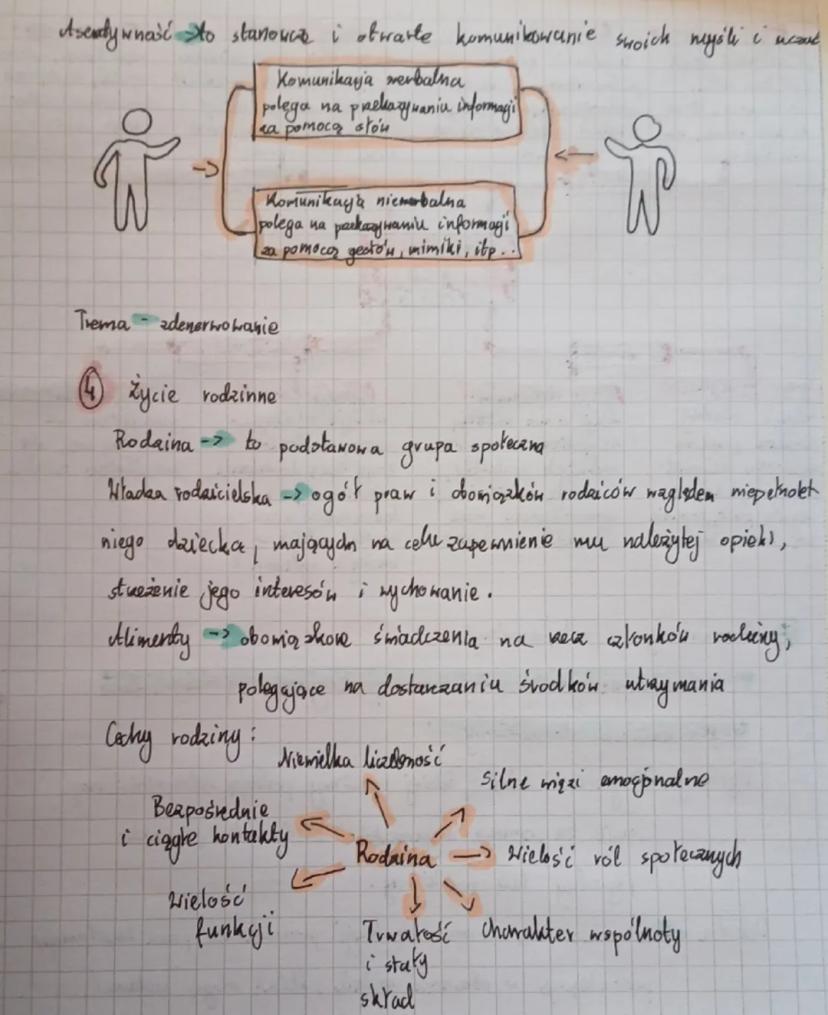 Asertywność -> to stanowcze i otwarte komunikowanie swoich myśli i uczuć
Komunikacja werbalna
polega na przekazywaniu informacji
za pomocą słów
Komunikacja niewerbalna
polega na przekazywaniu informacji
za pomocą gestów, mimiki, itp..
Trema - zdenerwowanie
4 Życie rodzinne
Rodzina -> to podstawowa grupa społeczna
Władza rodzicielska -> ogół praw i obowiązków rodziców względem niepełnolet
niego dziecka, mających na celu zapewnienie mu należytej opieki,
strzeżenie jego interesów i wychowanie.
Alimenty -> obowiązkowe świadczenia na rzecz członków rodziny,
polegające na dostarczaniu środków utrzymania
Cechy rodziny:
Niewielka liczebność
Silne więzi emocjonalne
Bezpośrednie
i ciągłe kontakty
Rodzina -> Wielość ról społecznych
Wielość
funkcji
Trwałość
i stały
skład
Charakter wspólnoty